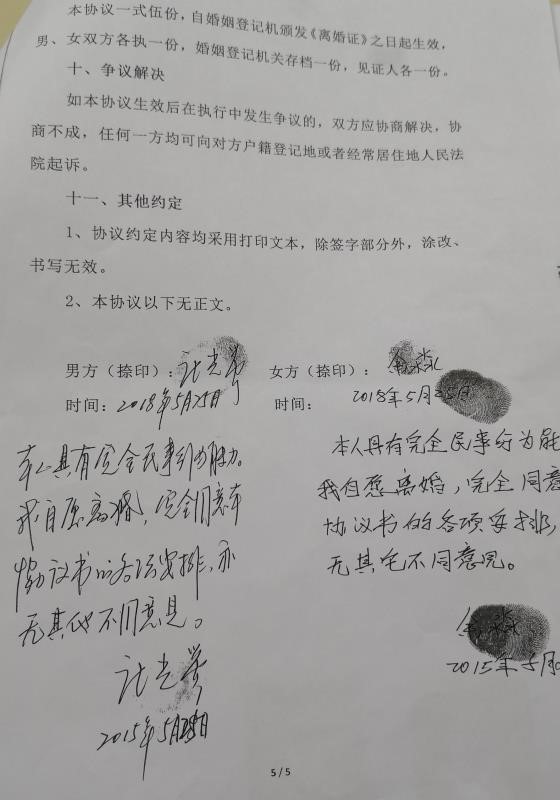 本协议一式伍份，自婚姻登记机颁发《离婚证》之日起生效，
男、女双方各执一份，婚姻登记机关存档一份，见证人各一份。
十、争议解决
如本协议生效后在执行中发生争议的，双方应协商解决，协
商不成，任何一方均可向对方户籍登记地或者经常居住地人民法
院起诉。
十一、其他约定
1、协议约定内容均采用打印文本，除签字部分外，涂改、
书写无效。
2、本协议以下无正文。
男方（捺印）：
女方（捺印）：
时间：2018年5月25日
时间： 2018年5月25日
本人具有完全民事行为能力。
我自愿离婚，完全同意本
协议书的各项安排，亦
无其他不同意见。
2015年5月25日
本人具有完全民事行为能
我自愿离婚，完全同意
协议书的各项安排，
无其它不同意见。
2015年5月
5 / 5